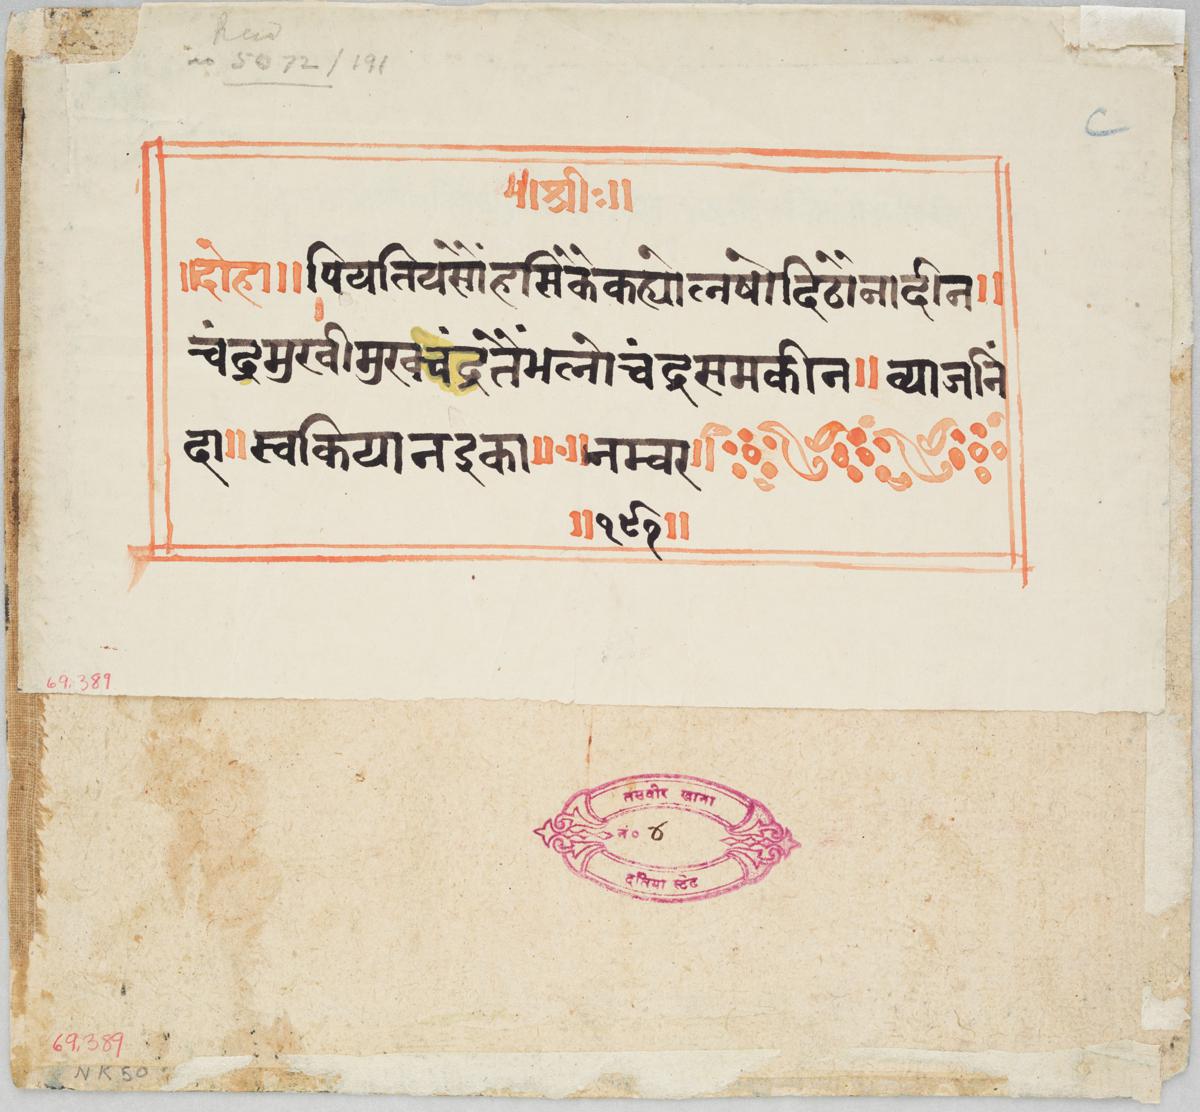 no 5072/191
C
॥श्रीः॥
॥दोहा॥ पियतियसौंहसिंकैकह्योलषोदिठौनादीन॥
चंद्रमुखीमुखचंद्रतैंभलोचंद्रसमकीन॥ व्याजनिं
दा॥ स्वकियानइका॥॰॥नम्वर॥
॥१९१॥
69.389
तसवीर खाना
नं० ४
दतिया स्टेट
69.389
NK50